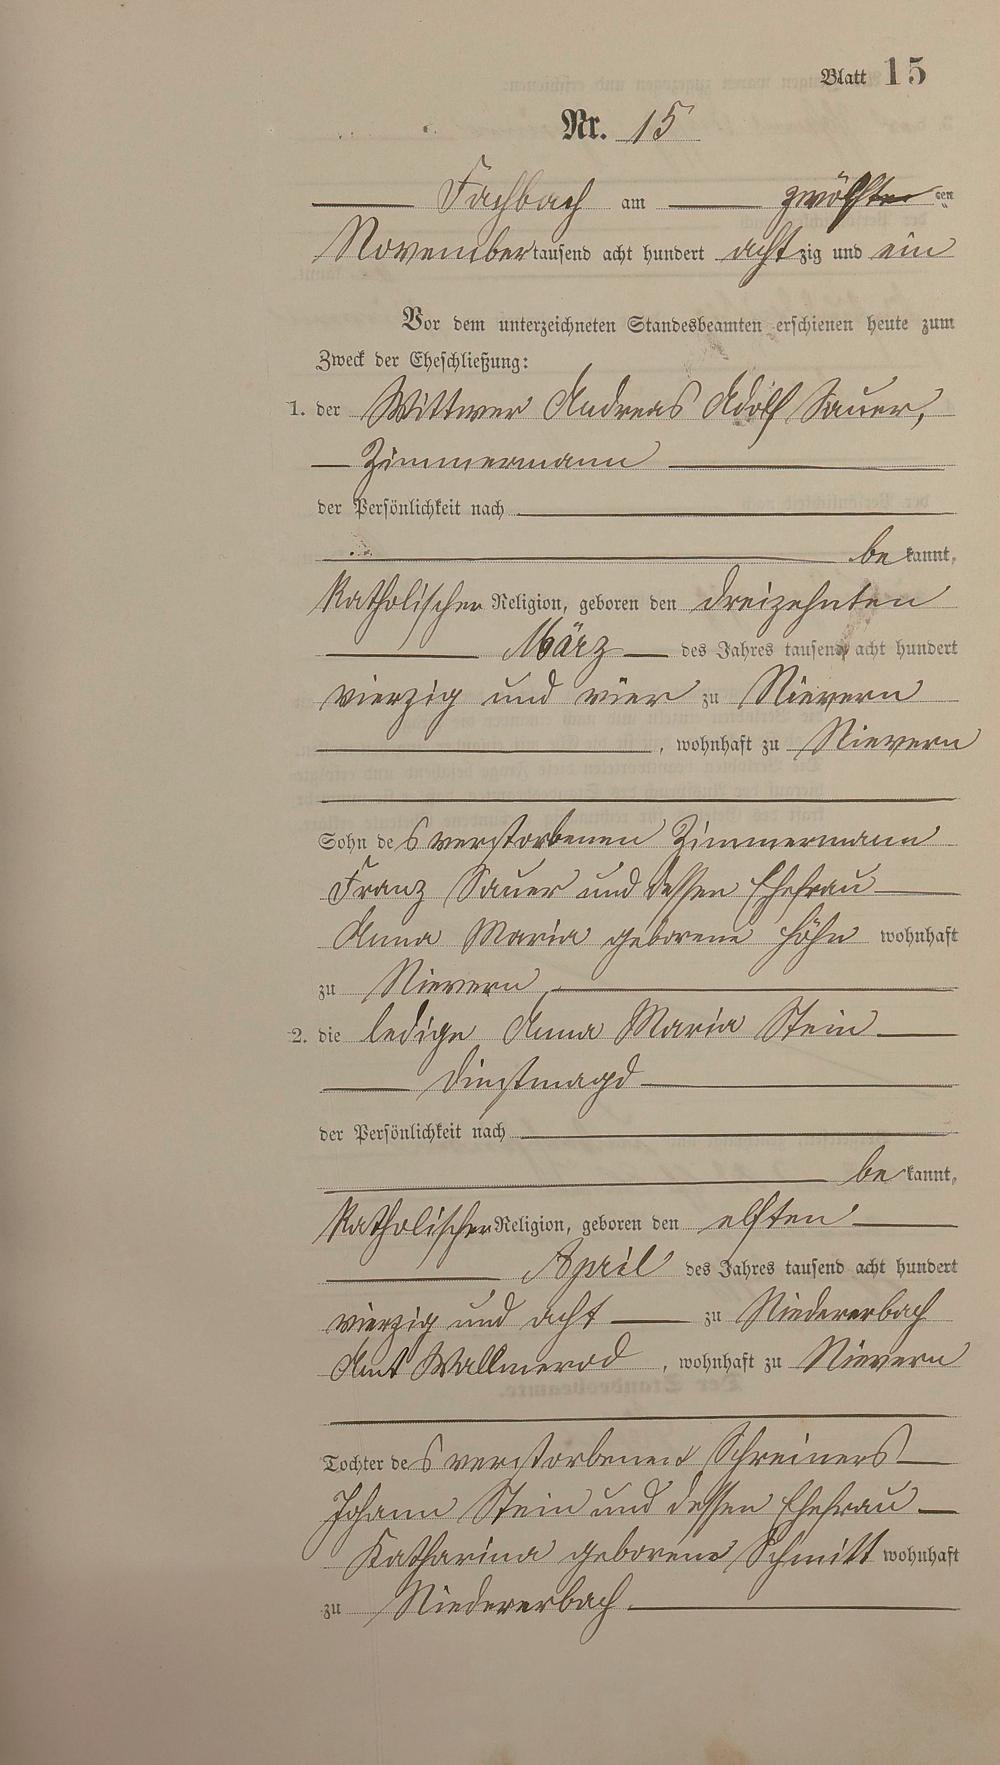 Blatt 15
Nr. 15
Fachbach am zwölften
November tausend acht hundert achtzig und ein
Vor dem unterzeichneten Standesbeamten erschienen heute zum
Zweck der Eheschließung:
1. der Wittwer Andreas Adolf Sauer,
Zimmermann
der Persönlichkeit nach
bekannt,
katholischer Religion, geboren den dreizehnten
März des Jahres tausend acht hundert
vierzig und vier zu Nievern
, wohnhaft zu Nievern
Sohn des verstorbenen Zimmermann
Franz Sauer und dessen Ehefrau
Anna Maria geborene Höhn wohnhaft
zu Nievern
2. die ledige Anna Maria Stein
Dinstmagd
der Persönlichkeit nach
bekannt,
katholischer Religion, geboren den elften
April des Jahres tausend acht hundert
vierzig und acht zu Niedererbach
Amt Wallmerod , wohnhaft zu Nievern
Tochter des verstorbenen Schreiners
Johann Stein und dessen Ehefrau
Katharina geborene Schmitt wohnhaft
zu Niedererbach